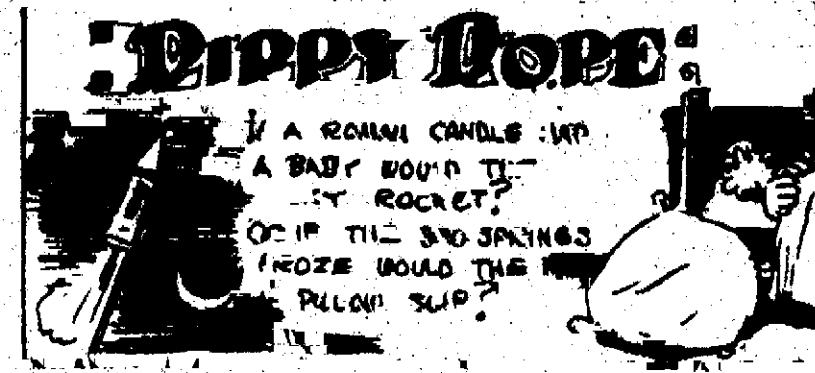 DIPPY DOPE
A ROMAN CANDLE HAD
A BABY WOULD THE
ROCKET?
OR IF THE BED SPRINGS
FROZE WOULD THE
PILLOW SLIP?